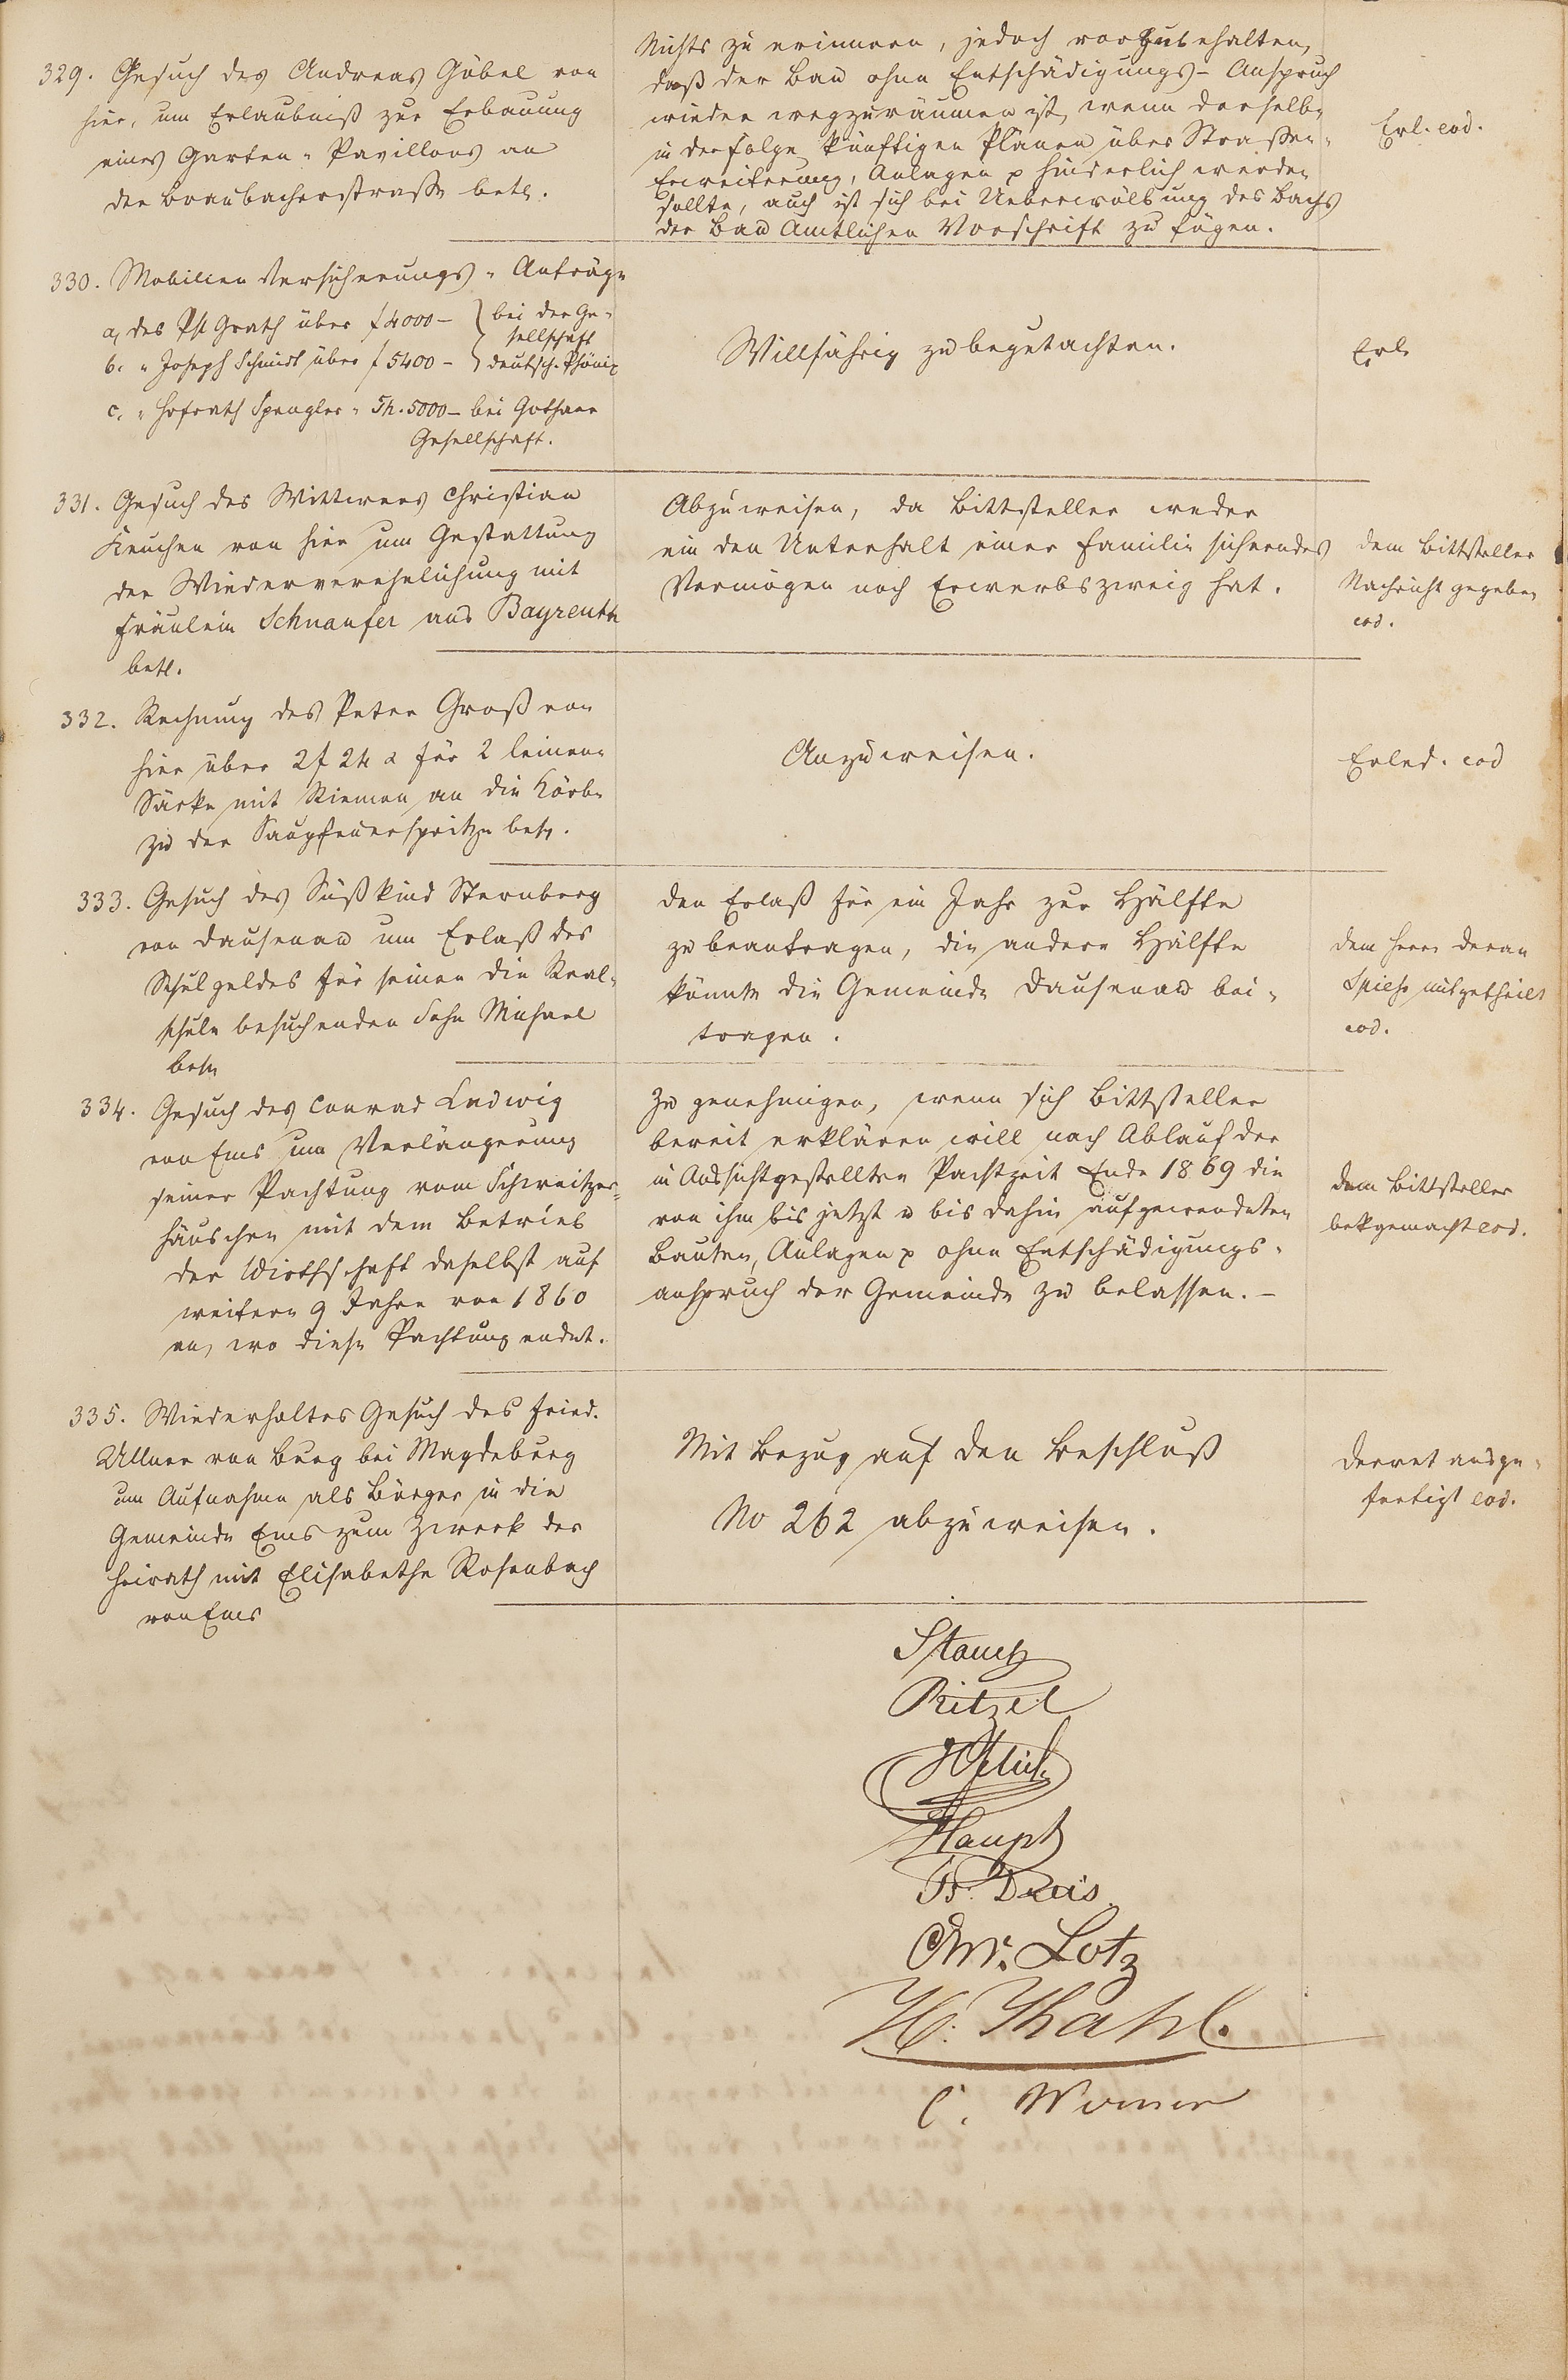 329. Gesuch des Andreas Göbel von
hier, um Erlaubniß zur Erbauung
eines Garten-Pavillons an
der Braubacherstraße betr.
Nichts zu erinnern, jedoch vorzubehalten,
daß der Bau ohne Entschädigungs-Anspruch
wieder wegzuräumen ist, wenn derselbe
in der Folge künftigen Plänen über Straßen-
Erweiterung, Anlagen p hinderlich werden
sollte, auch ist sich bei Ueberwölbung des Bachs
der Bau Amtlichen Vorschrift zu fügen.
Erl. eod.
330. Mobilien Versicherungs-Anträge
a, des Ph Grath über f 4000 – bei der Ge-
sellschaft
b. " Joseph Schmidt über f 5400 – deutsch. Phönix
c. " Hofrath Spengler " Th. 5000 – bei Gothaer
Gesellschaft.
Willfährig zu begutachten.
Erl.
331. Gesuch des Wittwers Christian
Keuchen von hier um Gestattung
der Wiederverehelichung mit
Fräulein Schnaufer aus Bayreuth
betr.
Abzuweisen, da Bittsteller weder
ein den Unterhalt einer Familie sicherndes
Vermögen noch Erwerbszweig hat.
dem Bittsteller
Nachricht gegeben
eod.
332. Rechnung des Peter Groß von
hier über 2 f 24 x für 2 leinene
Säcke mit Riemen an die Körbe
zu der Saugfeuerspritze betr.
Anzuweisen.
Erled. eod
333. Gesuch des Süßkind Sternberg
von Dausenau um Erlaß des
Schulgeldes für seinen die Real-
schule besuchenden Sohn Michael
betr
Den Erlaß für ein Jahr zur Hälfte
zu beantragen, die andere Hälfte
könnte die Gemeinde Dausenau bei-
tragen.
dem Herrn Decan
Spieß mitgetheilt
eod.
334. Gesuch des Conrad Ludwig
von Ems um Verlängerung
seiner Pachtung vom Schweitzer-
häuschen mit dem Betrieb
der Wirthschaft daselbst auf
weitere 9 Jahre von 1860
an, wo diese Pachtung endet.
Zu genehmigen, wenn sich Bittsteller
bereit erklären will nach Ablauf der
in Aussicht gestellten Pachtzeit Ende 1869 die
von ihm bis jetzt u bis dahin aufgewendeten
Bauten, Anlagen p ohne Entschädigungs-
anspruch der Gemeinde zu belassen. –
dem Bittsteller
bek gemacht eod.
335. Wiederholtes Gesuch des Fried.
Ullner von Burg bei Magdeburg
um Aufnahme als Bürger in die
Gemeinde Ems zum Zweck der
Heirath mit Elisabethe Rosenbach
von Ems
Mit Bezug auf den Beschluß
No 262 abzuweisen.
Decret ausge-
fertigt eod.
Ritzel
Haupt
Chr. Lotz
H. Thahl.
C. Werner